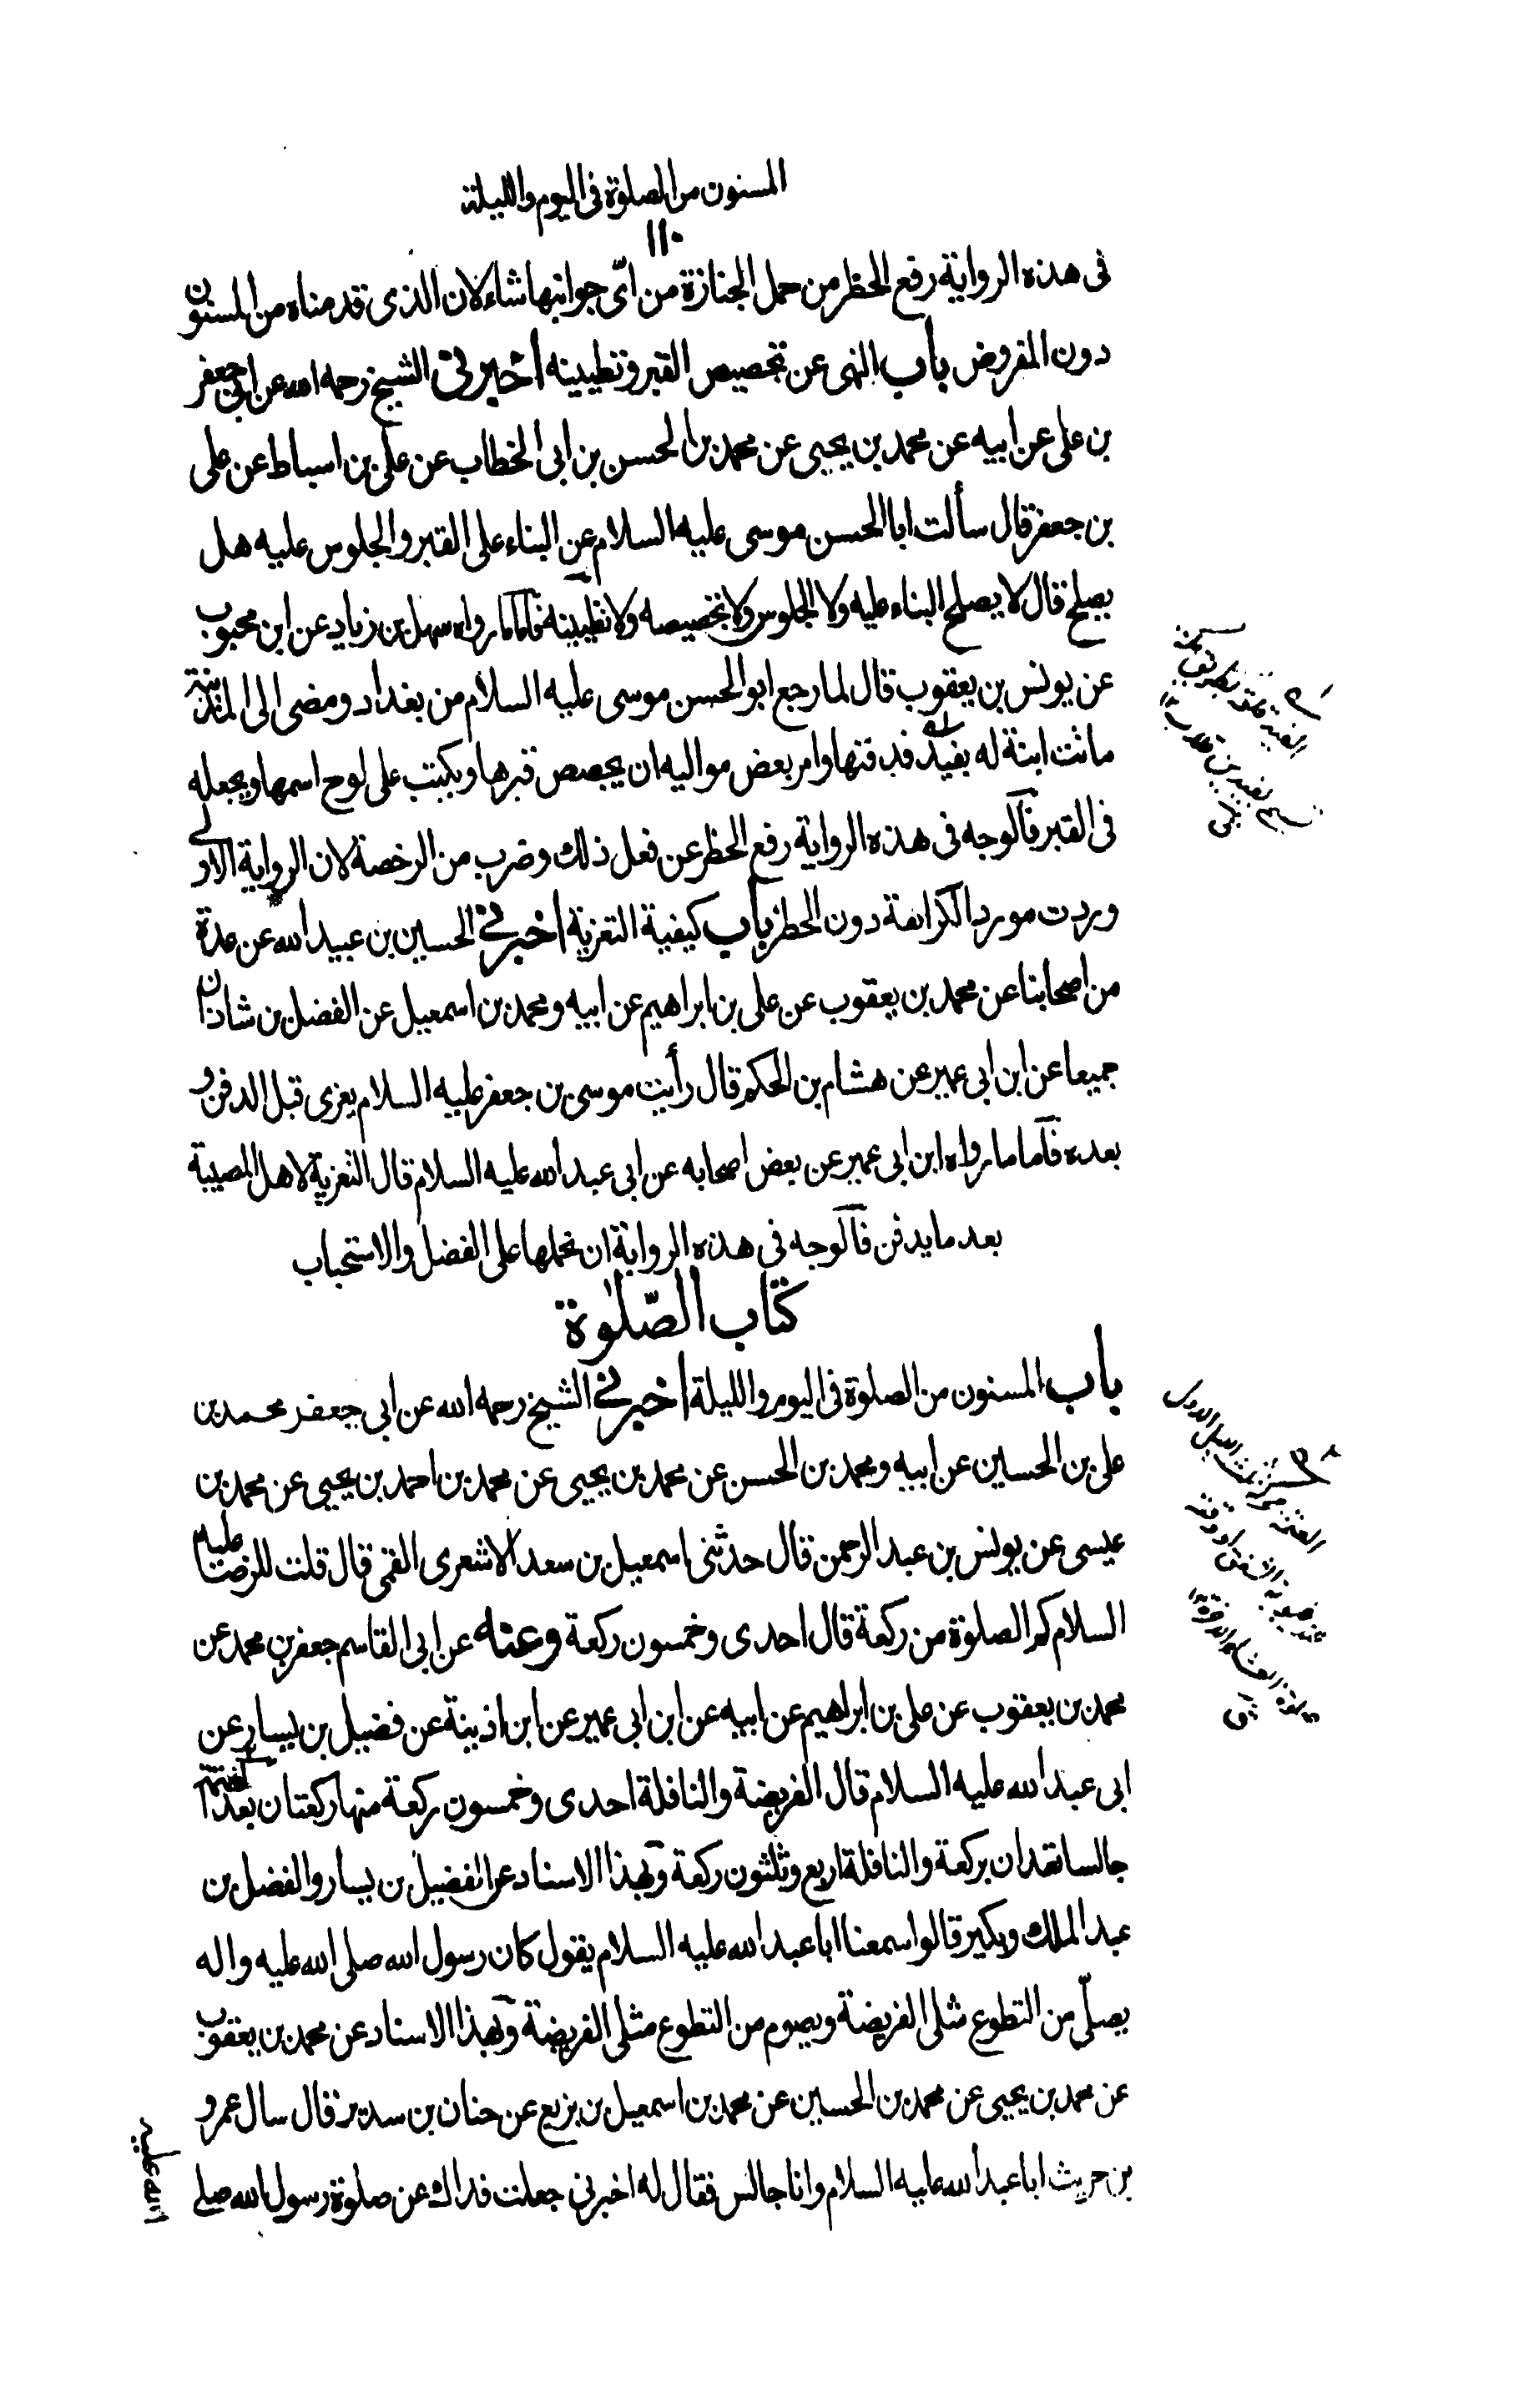 المسنون من الصلوة فى اليوم والليلة
١١٠
فى هذه الرواية رفع الحظر من حمل الجنازة من اىّ جوانبها شاء لان الذى قدمناه من المسنون
دون المفروض باب النهى عن تجصيص القبر وتطيينه اخبرنى الشيخ رحمه الله عن ابى جعفر
بن على عن ابيه عن محمد بن يحيى عن محمد بن الحسن بن ابى الخطاب عن على بن اسباط عن على
بن جعفر قال سألت ابا الحسن موسى عليه السلام عن البناء على القبر والجلوس عليه هل
يصلح قال لا يصلح البناء عليه ولا الجلوس ولا تجصيصه ولا تطيينه فاما ما رواه سهل بن زياد عن ابن محبوب
عن يونس بن يعقوب قال لما رجع ابو الحسن موسى عليه السلام من بغداد ومضى الى المدينة
ماتت ابنة له بفيد فدفنها وامر بعض مواليه ان يجصص قبرها ويكتب على لوح اسمها ويجعله
فى القبر فالوجه فى هذه الرواية رفع الحظر عن فعل ذلك وضرب من الرخصة لان الرواية الاولى
وردت مورد الكراهة دون الحظر باب كيفية التعزية اخبرنى الحسين بن عبيد الله عن عدة
من اصحابنا عن محمد بن يعقوب عن على بن ابراهيم عن ابيه ومحمد بن اسمعيل عن الفضل بن شاذان
جميعا عن ابن ابى عمير عن هشام بن الحكم قال رأيت موسى بن جعفر عليه السلام يعزى قبل الدفن و
بعده فاما ما رواه ابن ابى عمير عن بعض اصحابه عن ابى عبد الله عليه السلام قال التعزية لاهل المصيبة
بعد ما يدفن فالوجه فى هذه الرواية ان نحملها على الفضل والاستحباب
كتاب الصّلوة
باب المسنون من الصلوة فى اليوم والليلة اخبرنى الشيخ رحمه الله عن ابى جعفر محمد بن
على بن الحسين عن ابيه ومحمد بن الحسن عن محمد بن يحيى عن محمد بن احمد بن يحيى عن محمد بن
عيسى عن يونس بن عبد الرحمن قال حدثنى اسمعيل بن سعد الاشعرى القمى قال قلت للرضا عليه
السلام كم الصلوة من ركعة قال احدى وخمسون ركعة وعنه عن ابى القاسم جعفر بن محمد عن
محمد بن يعقوب عن على بن ابراهيم عن ابيه عن ابن ابى عمير عن ابن اذينة عن فضيل بن يسار عن
ابى عبد الله عليه السلام قال الفريضة والنافلة احدى وخمسون ركعة منها ركعتان بعد العتمة
جالسا تعدان بركعة والنافلة اربع وثلثون ركعة وبهذا الاسناد عن الفضيل بن يسار والفضل بن
عبد الملك وبكير قالوا سمعنا ابا عبد الله عليه السلام يقول كان رسول الله صلى الله عليه واله
يصلّى من التطوع مثلى الفريضة ويصوم من التطوع مثلى الفريضة وبهذا الاسناد عن محمد بن يعقوب
عن محمد بن يحيى عن محمد بن الحسين عن محمد بن اسمعيل بن بزيع عن حنان بن سدير قال سال عمرو
بن حريث ابا عبد الله عليه السلام وانا جالس فقال له اخبرنى جعلت فداك عن صلوة رسول الله صلى
الله عليه